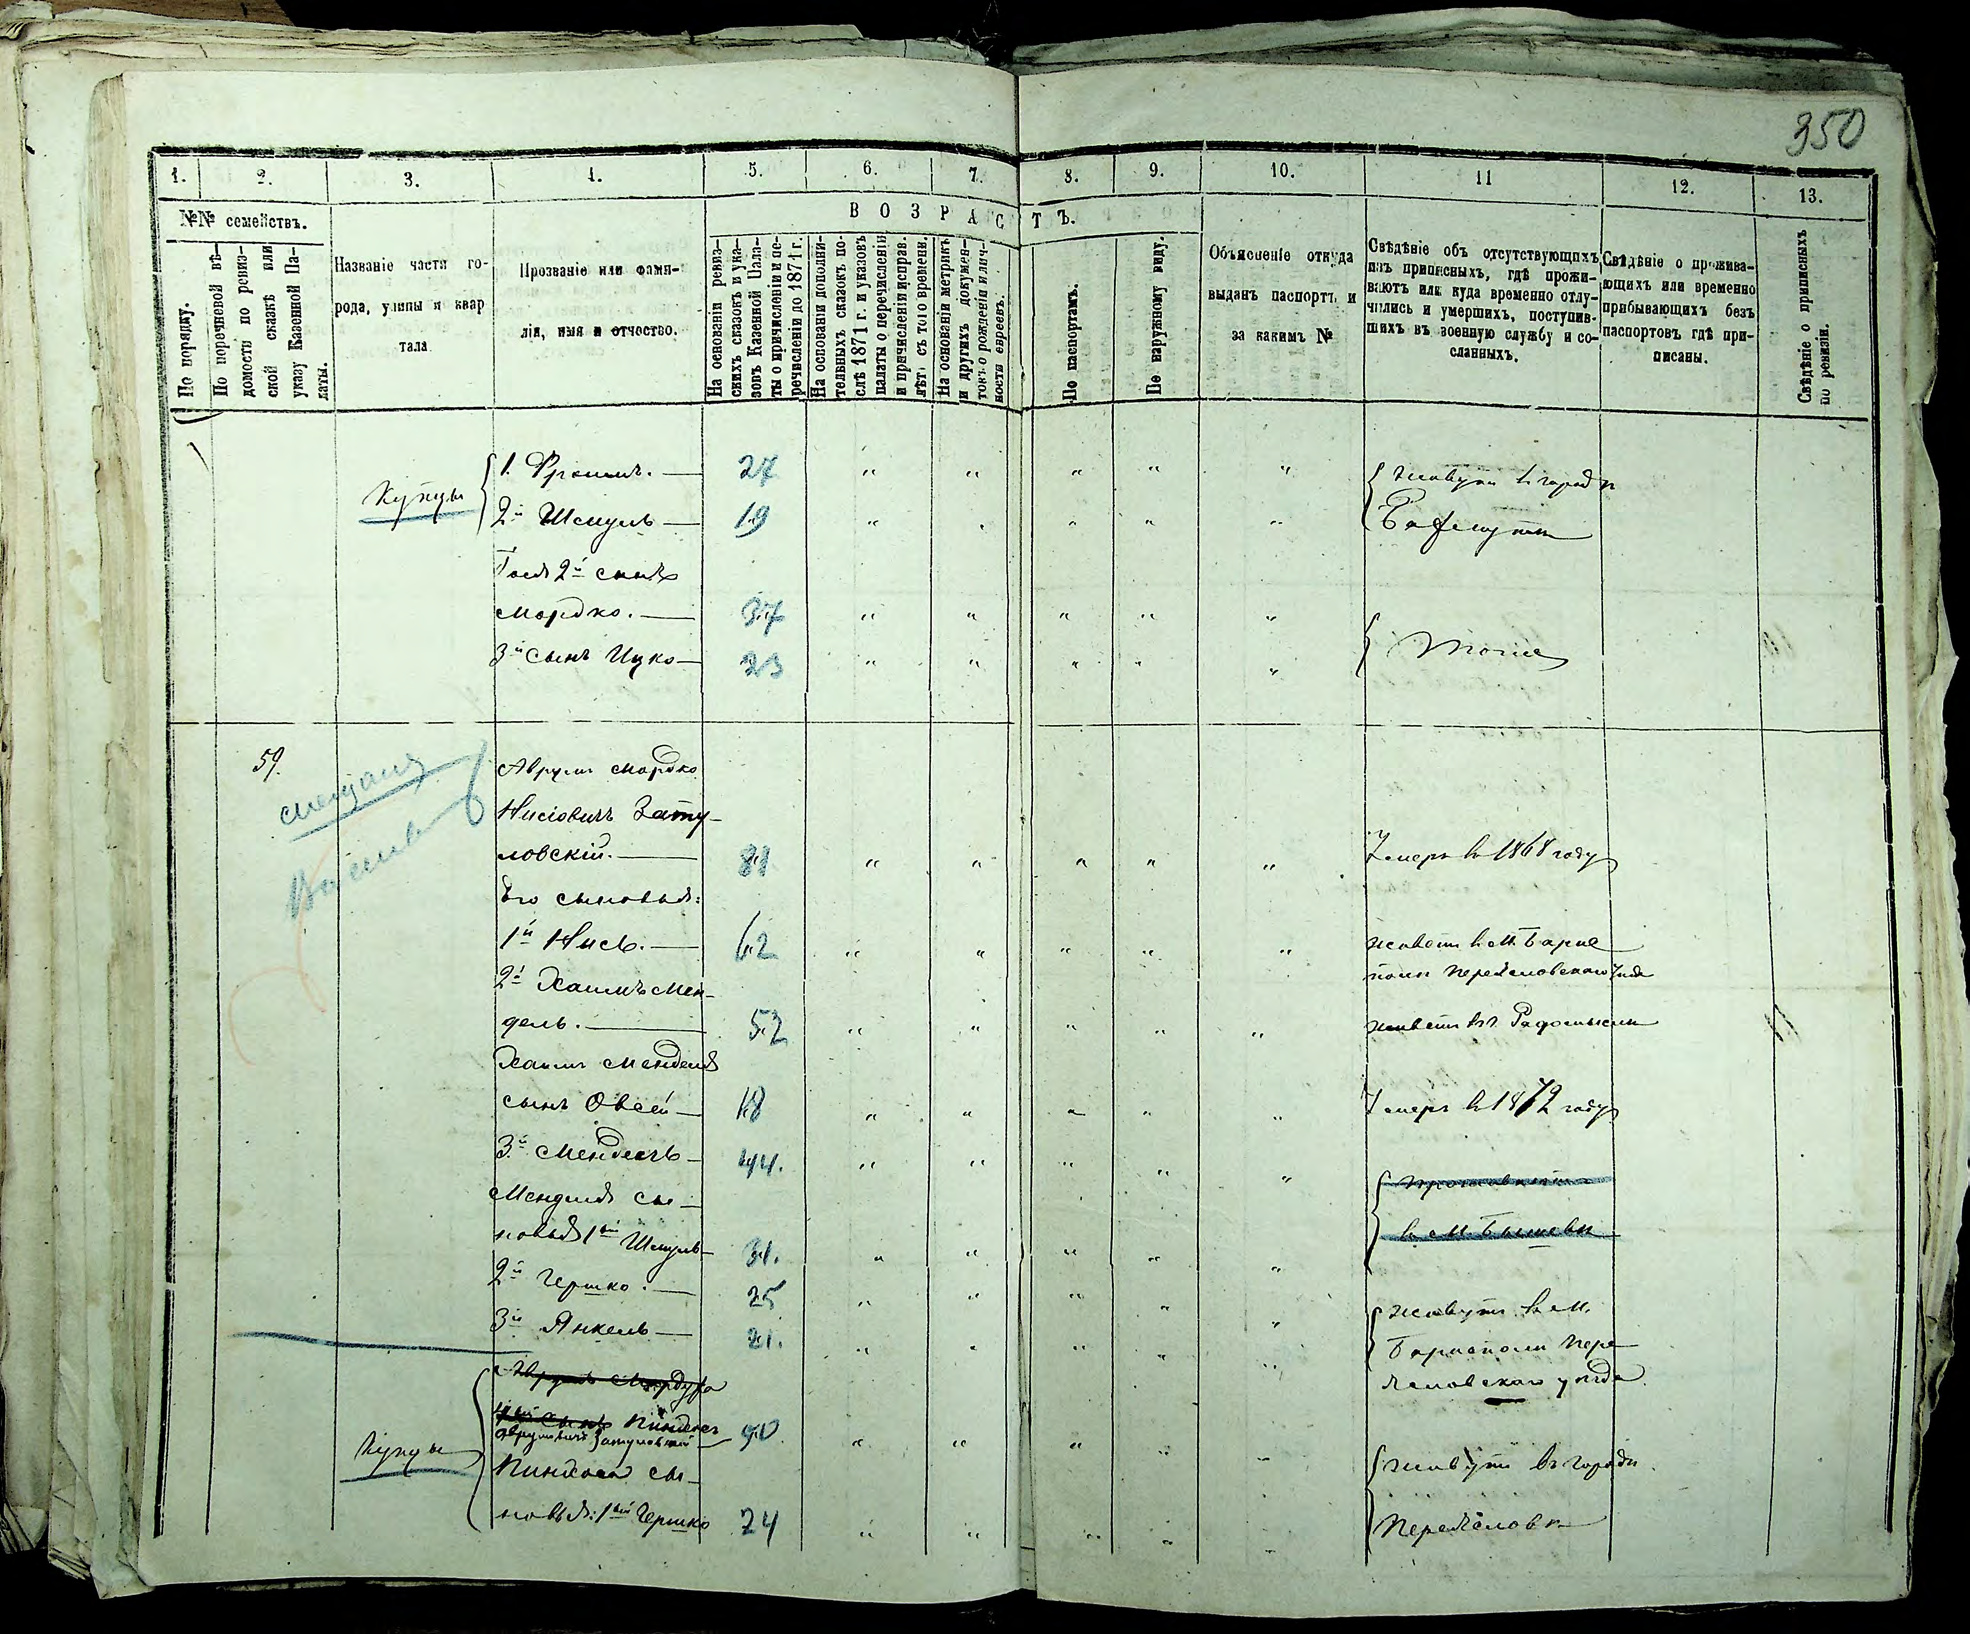 350
1.
2.
3.
4.
5.
6.
7.
8.
9.
10.
11
12.
13.
№№ семействъ.
ВОЗРАСТЪ.
По порядку.
По перечневой вѣ-
домости по ревиз-
ской сказкѣ или
указу Казенной Па-
латы.
Названіе части го-
рода, улицы и квар
тала
Прозваніе или фами-
лія, имя и отчество.
На основаніи ревиз-
скихъ сказокъ и ука-
зовъ Казенной Пала-
ты о причисленіи и пе-
речисленіи до 1871 г.
На основаніи дополни-
тельныхъ сказокъ по-
слѣ 1871 г. и указовъ
палаты о перечисленіи
и причисленіи исправ.
лѣтъ съ того времени.
На основаніи метрикъ
и другихъ докумен-
товъ о рожденіи и лич-
ности евреевъ.
По паспортамъ.
По наружному виду.
Объясненіе откуда
выданъ паспортъ и
за какимъ №
Свѣдѣніе объ отсутствующихъ
изъ приписныхъ, гдѣ прожи-
ваютъ или куда временно отлу-
чились и умершихъ, поступив-
шихъ въ военную службу и со-
сланныхъ.
Свѣдѣніе о прожива-
ющихъ или временно
прибывающихъ безъ
паспортовъ гдѣ при-
писаны.
Свѣдѣніе о приписныхъ
по ревизіи.
Купцы
1. Фроимъ. — 27 " " " " " живутъ въ городѣ
2й Шмуль — 19 " " " " "
2й сынъ
Мордко. — 37 " " " " " тоже
3й сынъ Ицко — 23 " " " " "
59.
мещане
Аврумъ Мордко
Нисіовичъ Зату-
ловскій. — 81 " " " " " Умеръ въ 1868 году
Его сыновья:
1й Нись. — 62 " " " " " живетъ въ М. Барис
поли Переяславскаго уѣзда
2й Хаимъ Мен-
дель. — 52 " " " " " живетъ въ г. Радомысли
Хаимъ Менделя
сынъ Овсей — 18 " " " " " Умеръ въ 1872 году
3й Мендель — 44. " " " " "
въ М. Бышеви
Менделя сы-
новья 1ый Шмуль — 31. " " " " "
2й Гершко. — 25 " " " " " живутъ въ М.
3й Янкель — 21. " " " " " Борисполи Пере
яславскаго уѣзда
Купцы
Аврумъ Мордуха
4ый сынъ Пинхасъ
Аврумовичъ Затуловскій — 40 " " " " " живутъ въ городѣ
Пинхоса сы-
новья: 1ый Гершко 24 " " " " " Переяславѣ